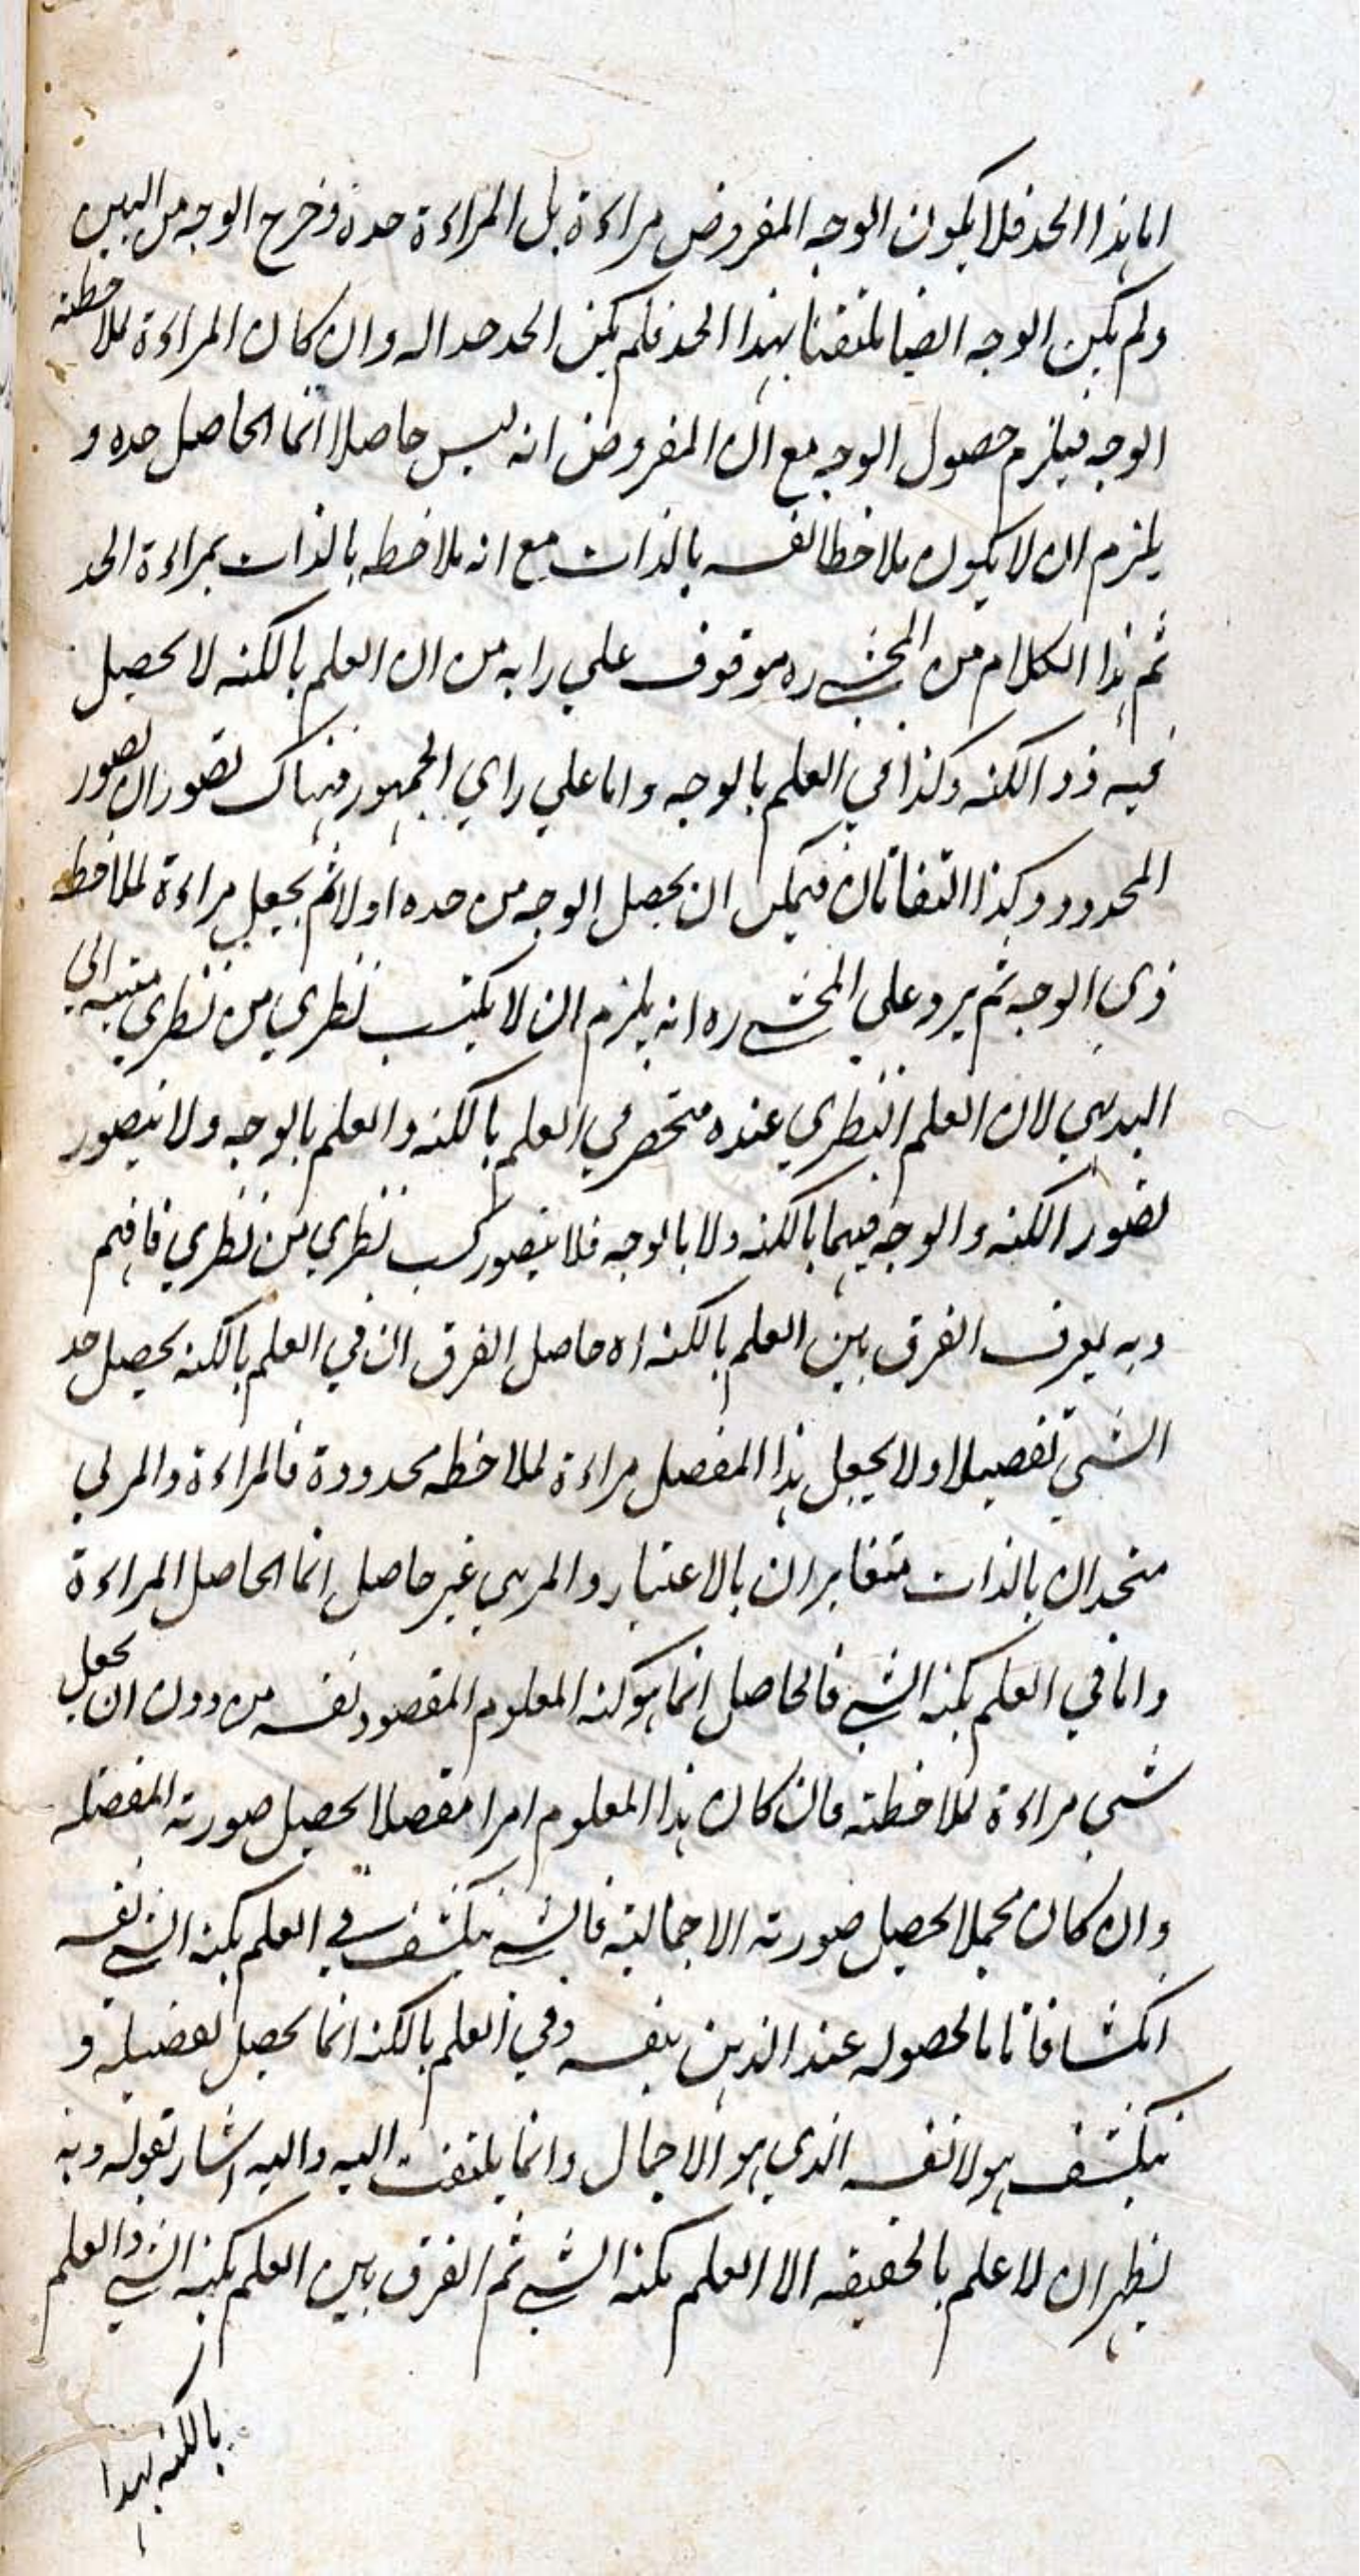 اما هذا الحد فلا يكون الوجه المفروض مراءة بل المراءة حده وخرج الوجه من البين
ولم يكن الوجه ايضا ملتفتا بهذا الحد فلم يكن الحد حدا له وان كان المراءة لملاحظته
الوجه فيلزم حصول الوجه مع ان المفروض انه ليس حاصلا انما الحاصل حده و
يلزم ان لا يكون ملاحظا لنفسه بالذات مع انه ملاحظه بالذات بمراءة الحد
ثم هذا الكلام من المحشي ره موقوف علي رايه من ان العلم بالكنه لا يحصل
فيه ذو الكنه وكذا في العلم بالوجه واما علي راي الجمهور فهناك تصوران تصور
المحدود وكذا التفاتان فيمكن ان يحصل الوجه من حده اولا ثم يجعل مراءة لملاحظه
ذي الوجه ثم يرد علي المحشي ره انه يلزم ان لا يكتسب نظري من نظري منتهيه الي
البديهي لان العلم النظري عنده منحصر في العلم بالكنه والعلم بالوجه ولا يتصور
تصور الكنه والوجه فيهما بالكنه ولا بالوجه فلا يتصور كسب نظري من نظري فافهم
وبه يعرف الفرق بين العلم بالكنه اه حاصل الفرق ان في العلم بالكنه يحصل حد
الشي تفصيلا اولا يجعل هذا المفصل مراءة لملاحظه محدودة فالمراءة والمرئي
متحدان بالذات متغايران بالاعتبار والمرئي غير حاصل انما الحاصل المراءة
واما في العلم بكنه الشي فالحاصل انما هو كنه المعلوم المقصود نفسه من دون ان يجعل
شي مراءة لملاحظته فان كان هذا المعلوم امرا مفصلا يحصل صورته المفصله
وان كان مجملا يحصل صورته الاجماليه فالشي ينكشف في العلم بكنه الشي نفسه
انكشافا تاما لحصوله عند الذهن بنفسه وفي العلم بالكنه انما يحصل تفصيله و
ينكشف هو لا نفسه الذي هو الاجمال وانما يلتفت اليه واليه اشار بقوله وبه
يظهر ان لا علم بالحقيقه الا العلم بكنه الشي ثم الفرق بين العلم بكنه الشي والعلم
بالكنه بهذا